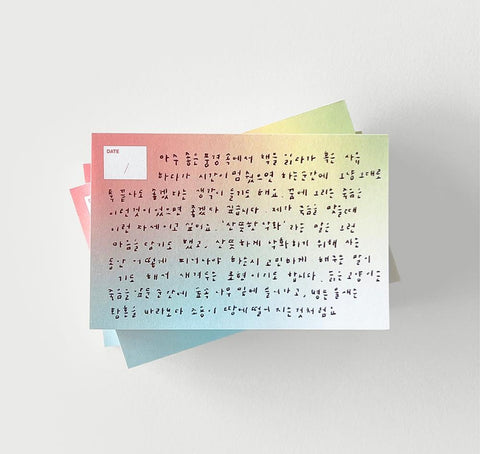 DATE
/
아주 좋은 풍경 속에서 책을 읽다가 혹은 사유
하다가 시간이 멈췄으면 하는 순간에 그냥 그대로
툭 끝나도 좋겠다는 생각이 들기도 해요. 꿈에 그리는 죽음은
이런것이 었으면 좋겠다 싶습니다. 제가 죽음을 맞을때
이런 자세이고 싶어요. '산뜻한 악화' 라는 말은 그런
마음을 담기도 했고, 산뜻하게 악화하기 위해 사는
동안 어떻게 지켜야 하는지 고민하게 해주는 말이
기도 해서 생겨나는 표현이기도 합니다. 늙은 고양이는
죽음을 앞둔 순간에 풀숲 나무 밑에 들어가고, 병든 물새는
탐조를 바라보다 조용히 땅에 떨어지는 것처럼요